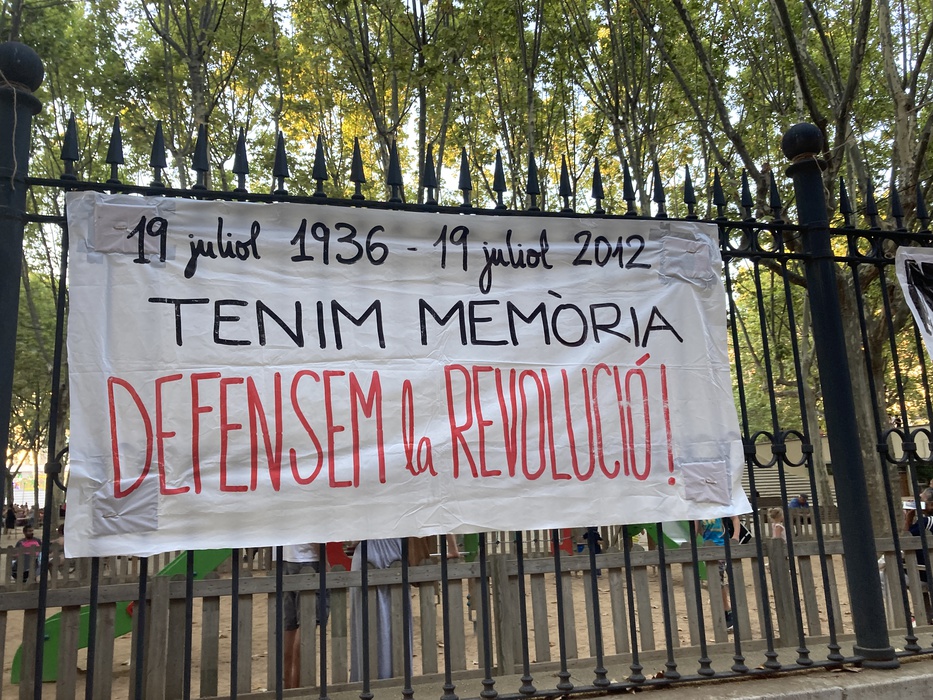 19 juliol 1936 - 19 juliol 2012
TENIM MEMÒRIA
DEFENSEM la REVOLUCIÓ!